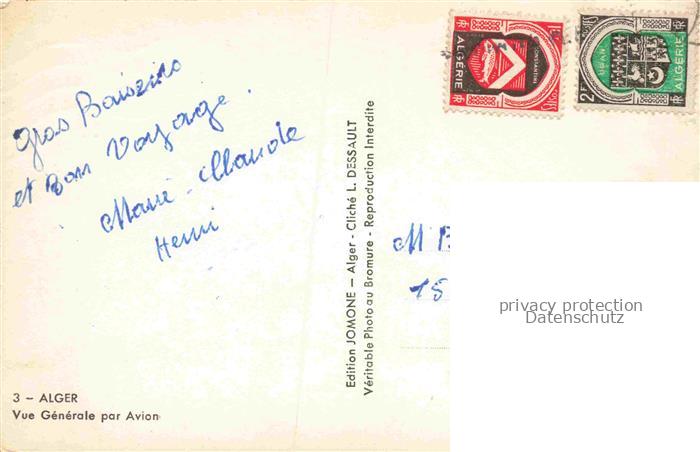 Gros Baisers
et Bon Voyage.
Marie-Claude
Henri
3 – ALGER
Vue Générale par Avion
Edition JOMONE — Alger - Cliché L. DESSAULT
Véritable Photo au Bromure - Reproduction Interdite
ALGÉRIE
CONSTANTINE
RF
2F
ORAN
ALGÉRIE
RF
M B
15
privacy protection
Datenschutz